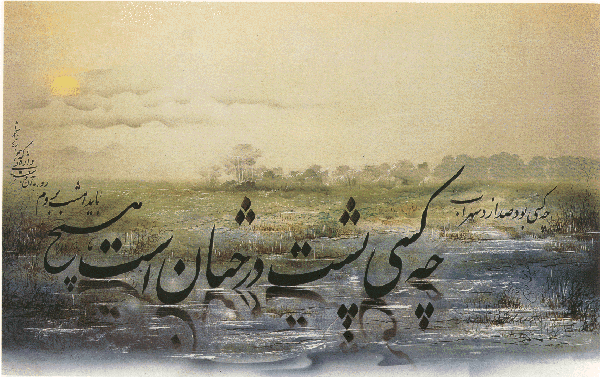 چه کسی بود صدا زد سهراب
چه کسی پشت درختان است هیچ
باید امشب بروم